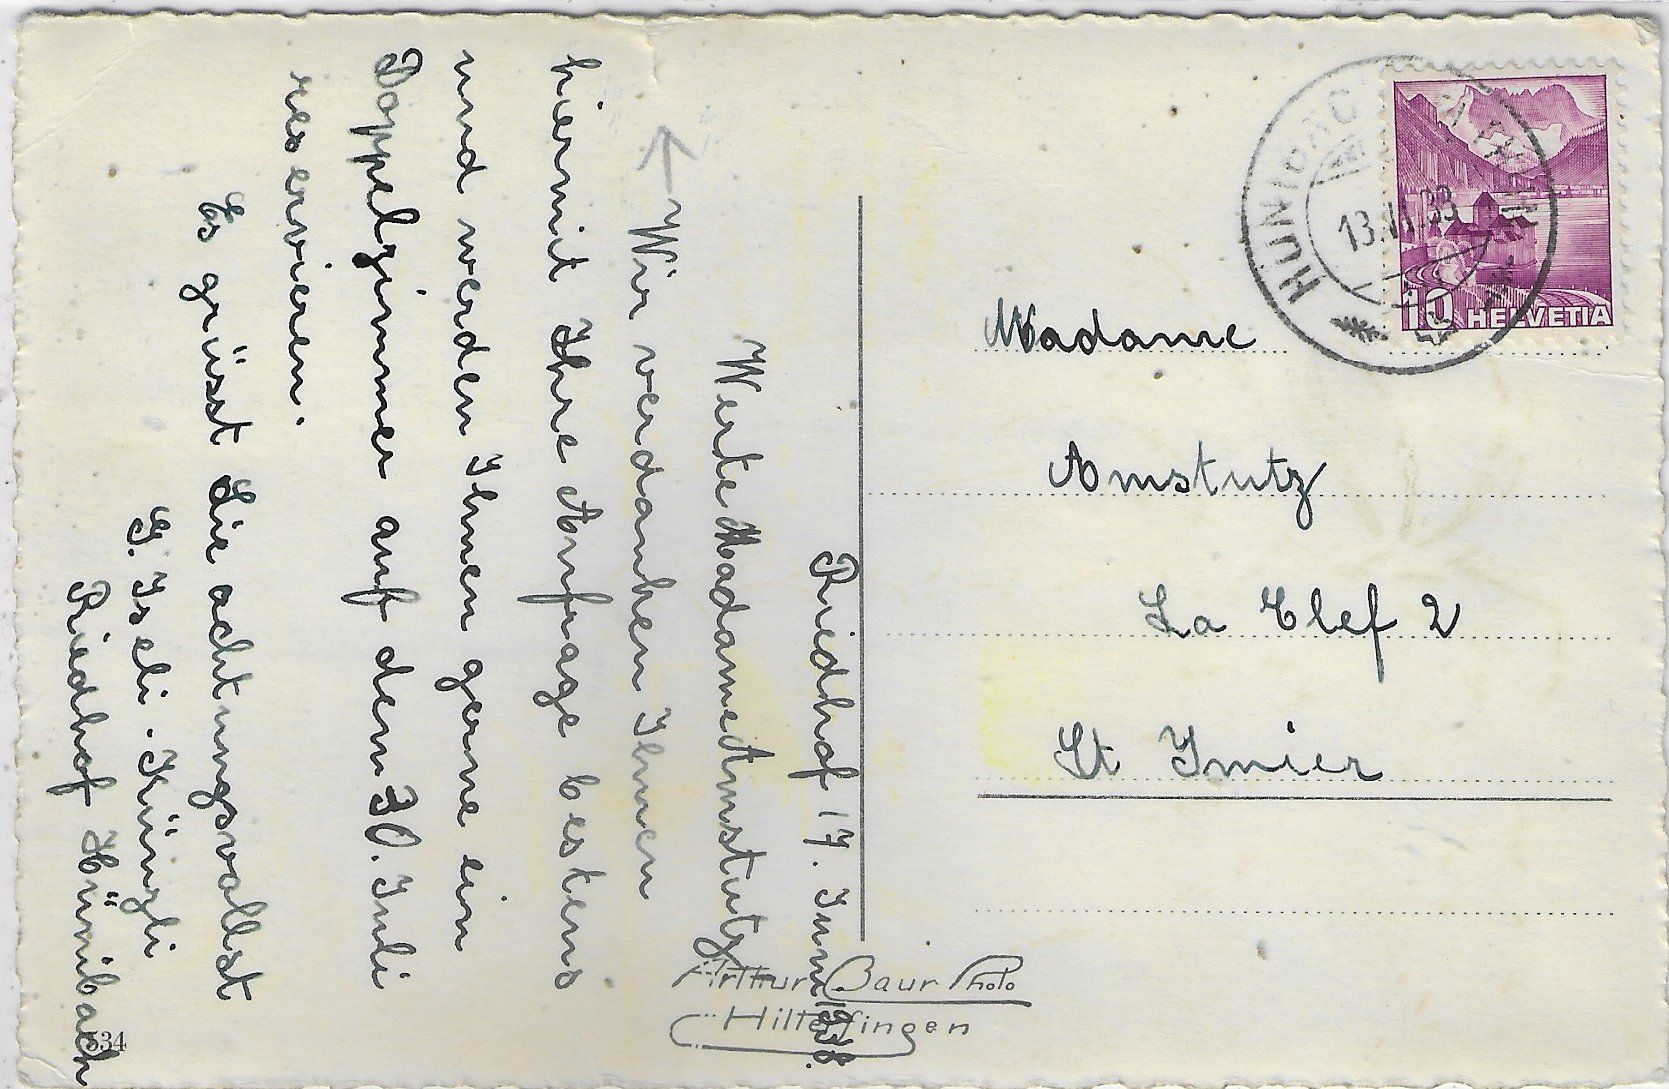 Riedhof 17. Juni 1938.
Werte Madame Amstutz
Wir verdanken Ihnen
hiermit Ihre Anfrage bestens
und werden Ihnen gerne ein
Doppelzimmer auf den 30. Juli
reservieren.
Es grüsst Sie achtungsvollst
Iseli-Künzli
Riedhof Hünibach
534
Madame
Amstutz
La Clef 2
St Imier
10 HELVETIA
Arthur Baur Photo
Hilterfingen